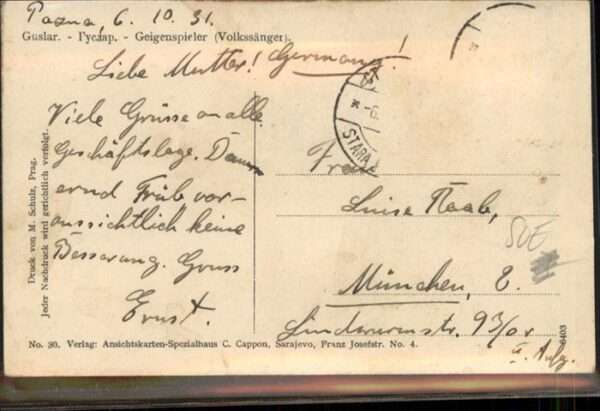 6. 10. 31.
Guslar. - Гуслар. - Geigenspieler (Volkssänger).
Liebe Mutter! Germany!
Viele Grüsse an alle.
Geschäftslage. Dauernd
Trüb, vor-
aussichtlich keine
Besserung. Gruss
Ernst.
Druck von M. Schulz, Prag.
Jeder Nachdruck wird gerichtlich verfolgt.
STARA
Frau
Luise Raab,
München, 8.
SOE
II. Aufg.
6403
No. 30. Verlag: Ansichtskarten-Spezialhaus C. Cappon, Sarajevo, Franz Josefstr. No. 4.